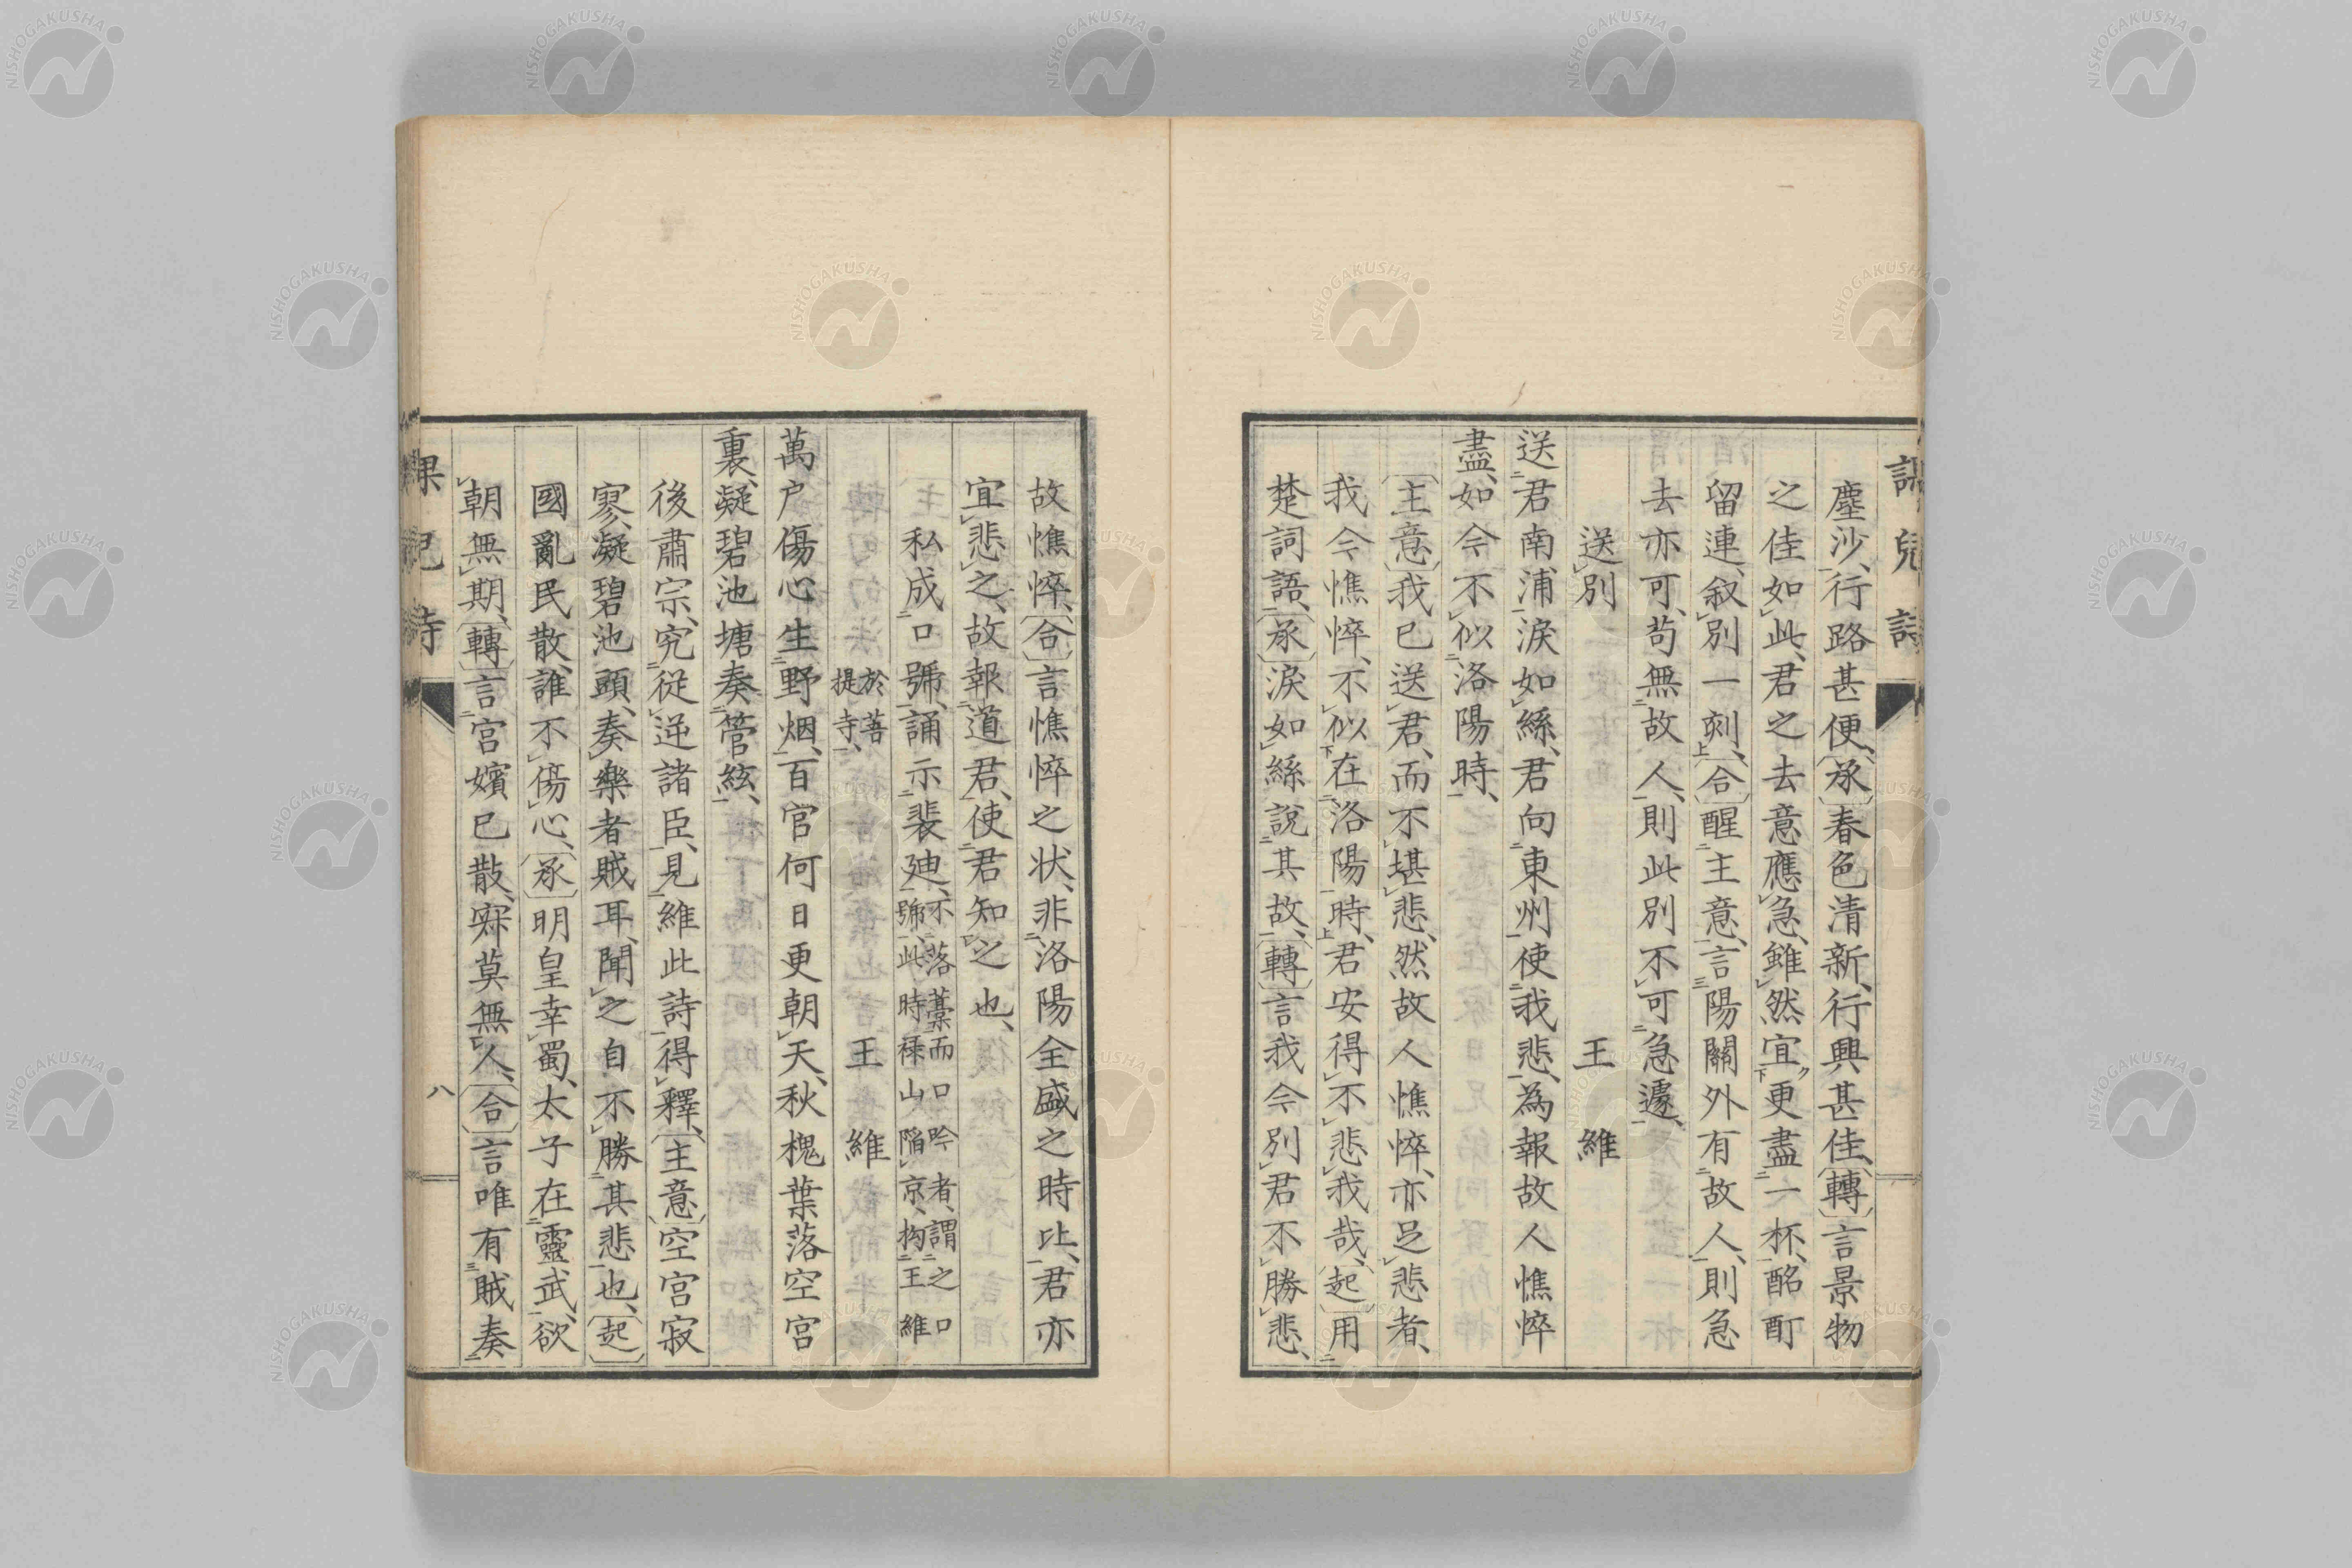 塵沙、行路甚便、〔承〕春色清新、行興甚佳、〔轉〕言景物
之佳如此、君之去意應急、雖然宜更盡一杯、酩酊
留連、叙別一刻、〔合〕醒主意、言陽關外有故人、則急
去亦可、苟無故人、則此別不可急遽、
送別 王維
送君南浦淚如絲、君向東州使我悲、為報故人憔悴
盡、如今不似洛陽時、
〔主意〕我已送君、而不堪悲、然故人憔悴、亦足悲者、
我今憔悴、不似在洛陽時、君安得不悲我哉、〔起〕用
楚詞語、〔承〕淚如絲說其故、〔轉〕言我今別君不勝悲、
故憔悴、〔合〕言憔悴之状、非洛陽全盛之時比、君亦
宜悲之、故報道君、使君知之也、
私成口號、誦示裴廸、不落藁而口吟者、謂之口號、此時祿山陷京、拘王維
於菩提寺、 王維
萬户傷心生野烟、百官何日更朝天、秋槐葉落空宮
裏、凝碧池塘奏管絃、
後肅宗、究從逆諸臣、見維此詩得釋、〔主意〕空宮寂
寥、凝碧池頭、奏樂者賊耳、聞之自不勝其悲也、〔起〕
國亂民散、誰不傷心、〔承〕明皇幸蜀、太子在靈武、欲
朝無期、〔轉〕言宮嬪已散、寂莫無人、〔合〕言唯有賊奏
課兒詩
八
NISHOGAKUSHA